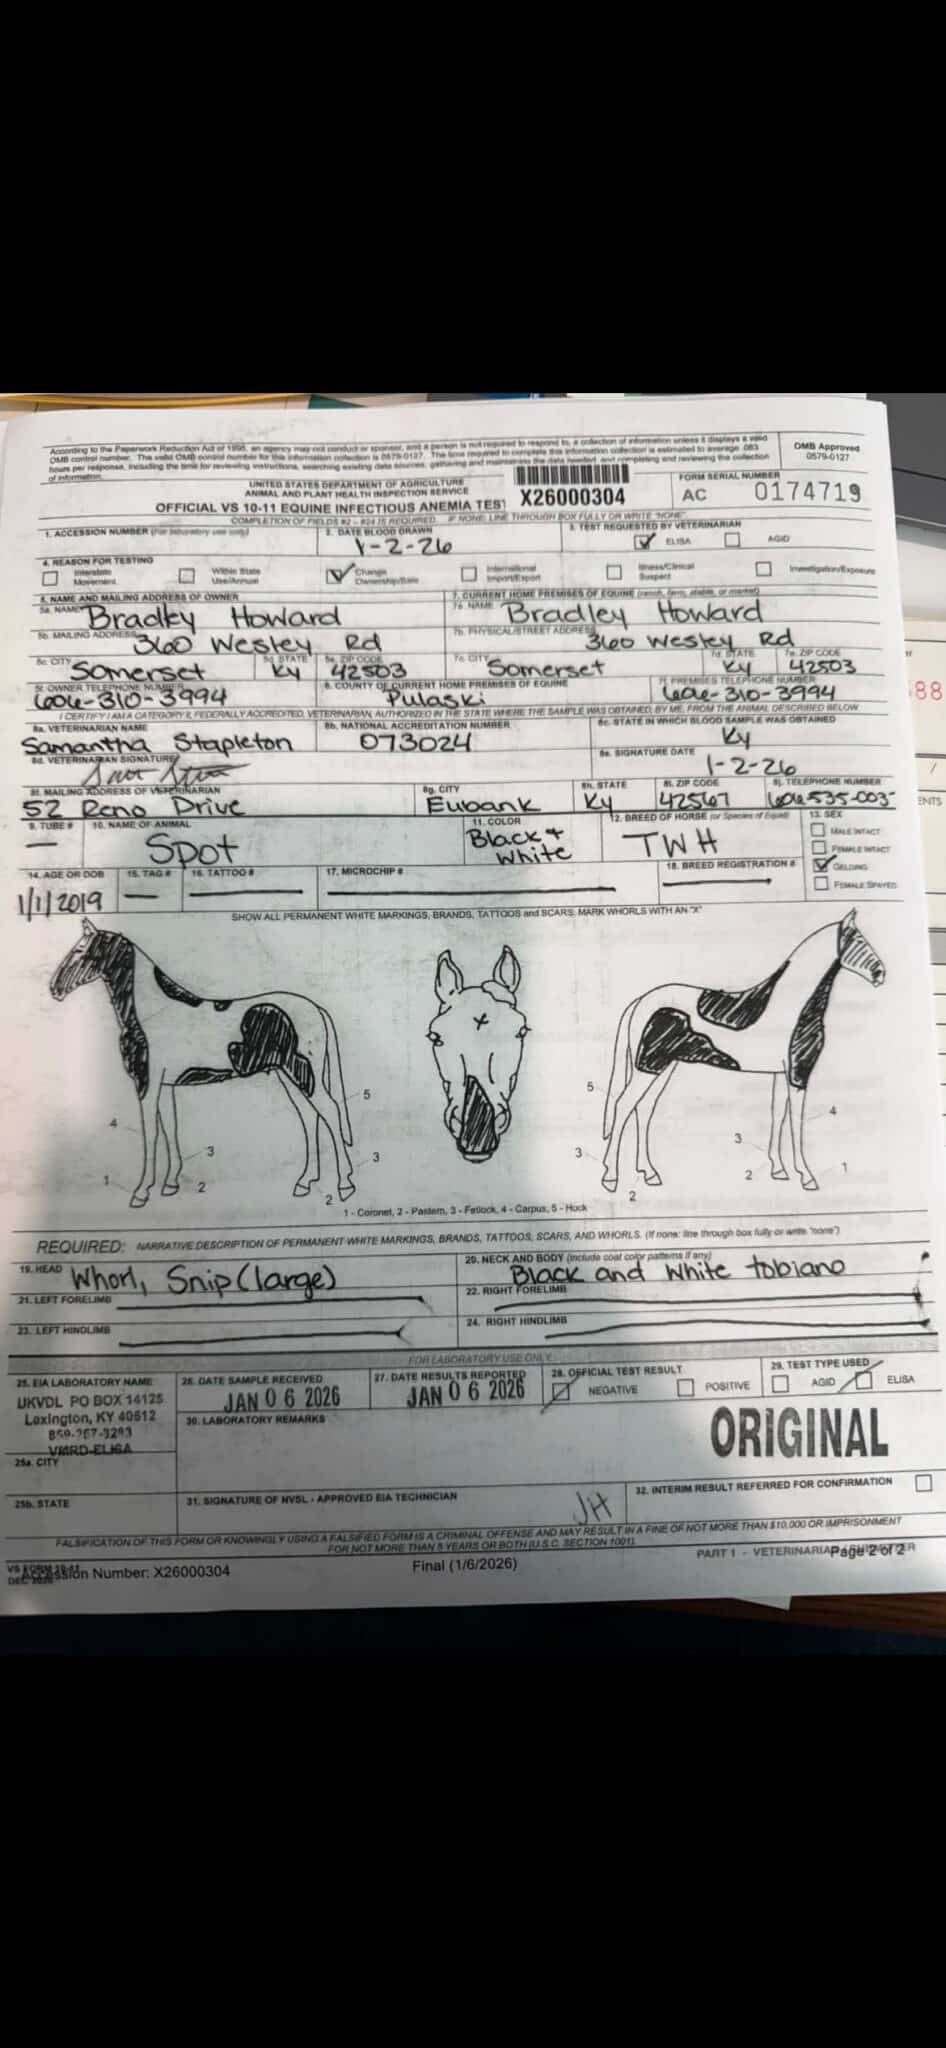 According to the Paperwork Reduction Act of 1995, an agency may not conduct or sponsor, and a person is not required to respond to, a collection of information unless it displays a valid
OMB control number. The valid OMB control number for this information collection is 0579-0127. The time required to complete this information collection is estimated to average .083
hours per response, including the time for reviewing instructions, searching existing data sources, gathering and maintaining the data needed, and completing and reviewing the collection
of information.
OMB Approved
0579-0127
UNITED STATES DEPARTMENT OF AGRICULTURE
ANIMAL AND PLANT HEALTH INSPECTION SERVICE
OFFICIAL VS 10-11 EQUINE INFECTIOUS ANEMIA TEST
X26000304
FORM SERIAL NUMBER
AC 0174719
COMPLETION OF FIELDS #2 - #24 IS REQUIRED. IF NONE: LINE THROUGH BOX FULLY OR WRITE "NONE".
1. ACCESSION NUMBER (For laboratory use only)
2. DATE BLOOD DRAWN
1-2-26
3. TEST REQUESTED BY VETERINARIAN
ELISA AGID
4. REASON FOR TESTING
Interstate Movement
Within State Use/Annual
Change Ownership/Sale
International Import/Export
Illness/Clinical Suspect
Investigation/Exposure
5. NAME AND MAILING ADDRESS OF OWNER
7. CURRENT HOME PREMISES OF EQUINE (ranch, farm, stable, or market)
5a. NAME Bradley Howard
7a. NAME Bradley Howard
5b. MAILING ADDRESS 360 Wesley Rd
7b. PHYSICAL/STREET ADDRESS 360 Wesley Rd
5c. CITY Somerset 5d. STATE Ky 5e. ZIP CODE 42503
7c. CITY Somerset 7d. STATE Ky 7e. ZIP CODE 42503
5f. OWNER TELEPHONE NUMBER 606-310-3994
6. COUNTY OF CURRENT HOME PREMISES OF EQUINE Pulaski
7f. PREMISES TELEPHONE NUMBER 606-310-3994
I CERTIFY I AM A CATEGORY II, FEDERALLY ACCREDITED, VETERINARIAN, AUTHORIZED IN THE STATE WHERE THE SAMPLE WAS OBTAINED, BY ME, FROM THE ANIMAL DESCRIBED BELOW
8a. VETERINARIAN NAME Samantha Stapleton
8b. NATIONAL ACCREDITATION NUMBER 073024
8c. STATE IN WHICH BLOOD SAMPLE WAS OBTAINED Ky
8d. VETERINARIAN SIGNATURE
8e. SIGNATURE DATE 1-2-26
8f. MAILING ADDRESS OF VETERINARIAN 52 Reno Drive
8g. CITY Eubank
8h. STATE Ky
8i. ZIP CODE 42567
8j. TELEPHONE NUMBER 606-535-003
9. TUBE #
10. NAME OF ANIMAL Spot
11. COLOR Black + White
12. BREED OF HORSE (or Species of Equid) TWH
13. SEX
MALE INTACT
FEMALE INTACT
GELDING
FEMALE SPAYED
14. AGE OR DOB 1/1/2019
15. TAG #
16. TATTOO #
17. MICROCHIP #
18. BREED REGISTRATION #
SHOW ALL PERMANENT WHITE MARKINGS, BRANDS, TATTOOS and SCARS, MARK WHORLS WITH AN "X"
x
5 5
4 4
3 3 3 3
1 2 2 2 2 1
1 - Coronet, 2 - Pastern, 3 - Fetlock, 4 - Carpus, 5 - Hock
REQUIRED: NARRATIVE DESCRIPTION OF PERMANENT WHITE MARKINGS, BRANDS, TATTOOS, SCARS, AND WHORLS. (If none: line through box fully or write "none")
19. HEAD Whorl, Snip (large)
20. NECK AND BODY (include coat color patterns if any)
Black and White tobiano
21. LEFT FORELIMB
22. RIGHT FORELIMB
23. LEFT HINDLIMB
24. RIGHT HINDLIMB
FOR LABORATORY USE ONLY
25. EIA LABORATORY NAME
UKVDL PO BOX 14125
Lexington, KY 40512
859-257-8283
VMRD-ELISA
26. DATE SAMPLE RECEIVED
JAN 06 2026
27. DATE RESULTS REPORTED
JAN 06 2026
28. OFFICIAL TEST RESULT
NEGATIVE POSITIVE
29. TEST TYPE USED
AGID ELISA
30. LABORATORY REMARKS
ORIGINAL
25a. CITY
25b. STATE
31. SIGNATURE OF NVSL - APPROVED EIA TECHNICIAN
JH
32. INTERIM RESULT REFERRED FOR CONFIRMATION
FALSIFICATION OF THIS FORM OR KNOWINGLY USING A FALSIFIED FORM IS A CRIMINAL OFFENSE AND MAY RESULT IN A FINE OF NOT MORE THAN $10,000 OR IMPRISONMENT
FOR NOT MORE THAN 5 YEARS OR BOTH (U.S.C. SECTION 1001).
VS FORM 10-11
PART 1 - VETERINARIAN
Page 2 of 2
Accession Number: X26000304
Final (1/6/2026)
88
ENTS